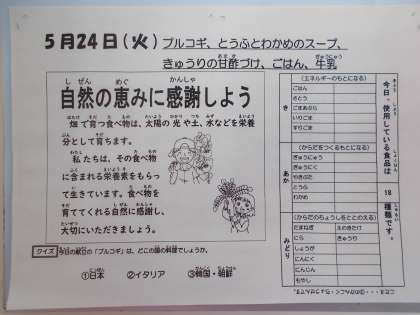 5月24日(火) プルコギ、とうふとわかめのスープ、
きゅうりの甘酢づけ、ごはん、牛乳
自然の恵みに感謝しよう
畑で育つ食べ物は、太陽の光や土、水などを栄養
分として育ちます。
私たちは、その食べ物
に含まれる栄養素をもらっ
て生きています。食べ物を
育ててくれる自然に感謝し、
大切にいただきましょう。
クイズ 今日の献立の「プルコギ」は、どこの国の料理でしょうか。
①日本 ②イタリア ③韓国・朝鮮
き
(エネルギーのもとになる)
ごはん
さとう
ごまあぶら
いりごま
すりごま
あか
(からだをつくるもとになる)
ぎゅうにゅう
ぎゅうにく
やきぶた
とうふ
わかめ
みどり
(からだのちょうしをととのえる)
たまねぎ えのきたけ
にら きゅうり
しょうが
にんにく
にんじん
もやし
今日、使用している食品は
18
種類です。